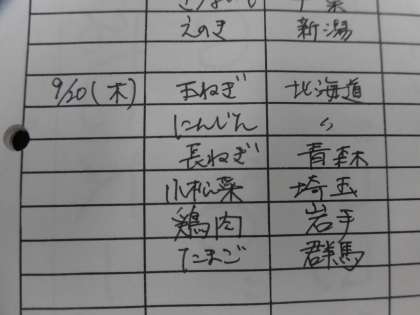 えのき 新潟
9/20(木) 玉ねぎ 北海道
にんじん 〃
長ねぎ 青森
小松菜 埼玉
鶏肉 岩手
たまご 群馬